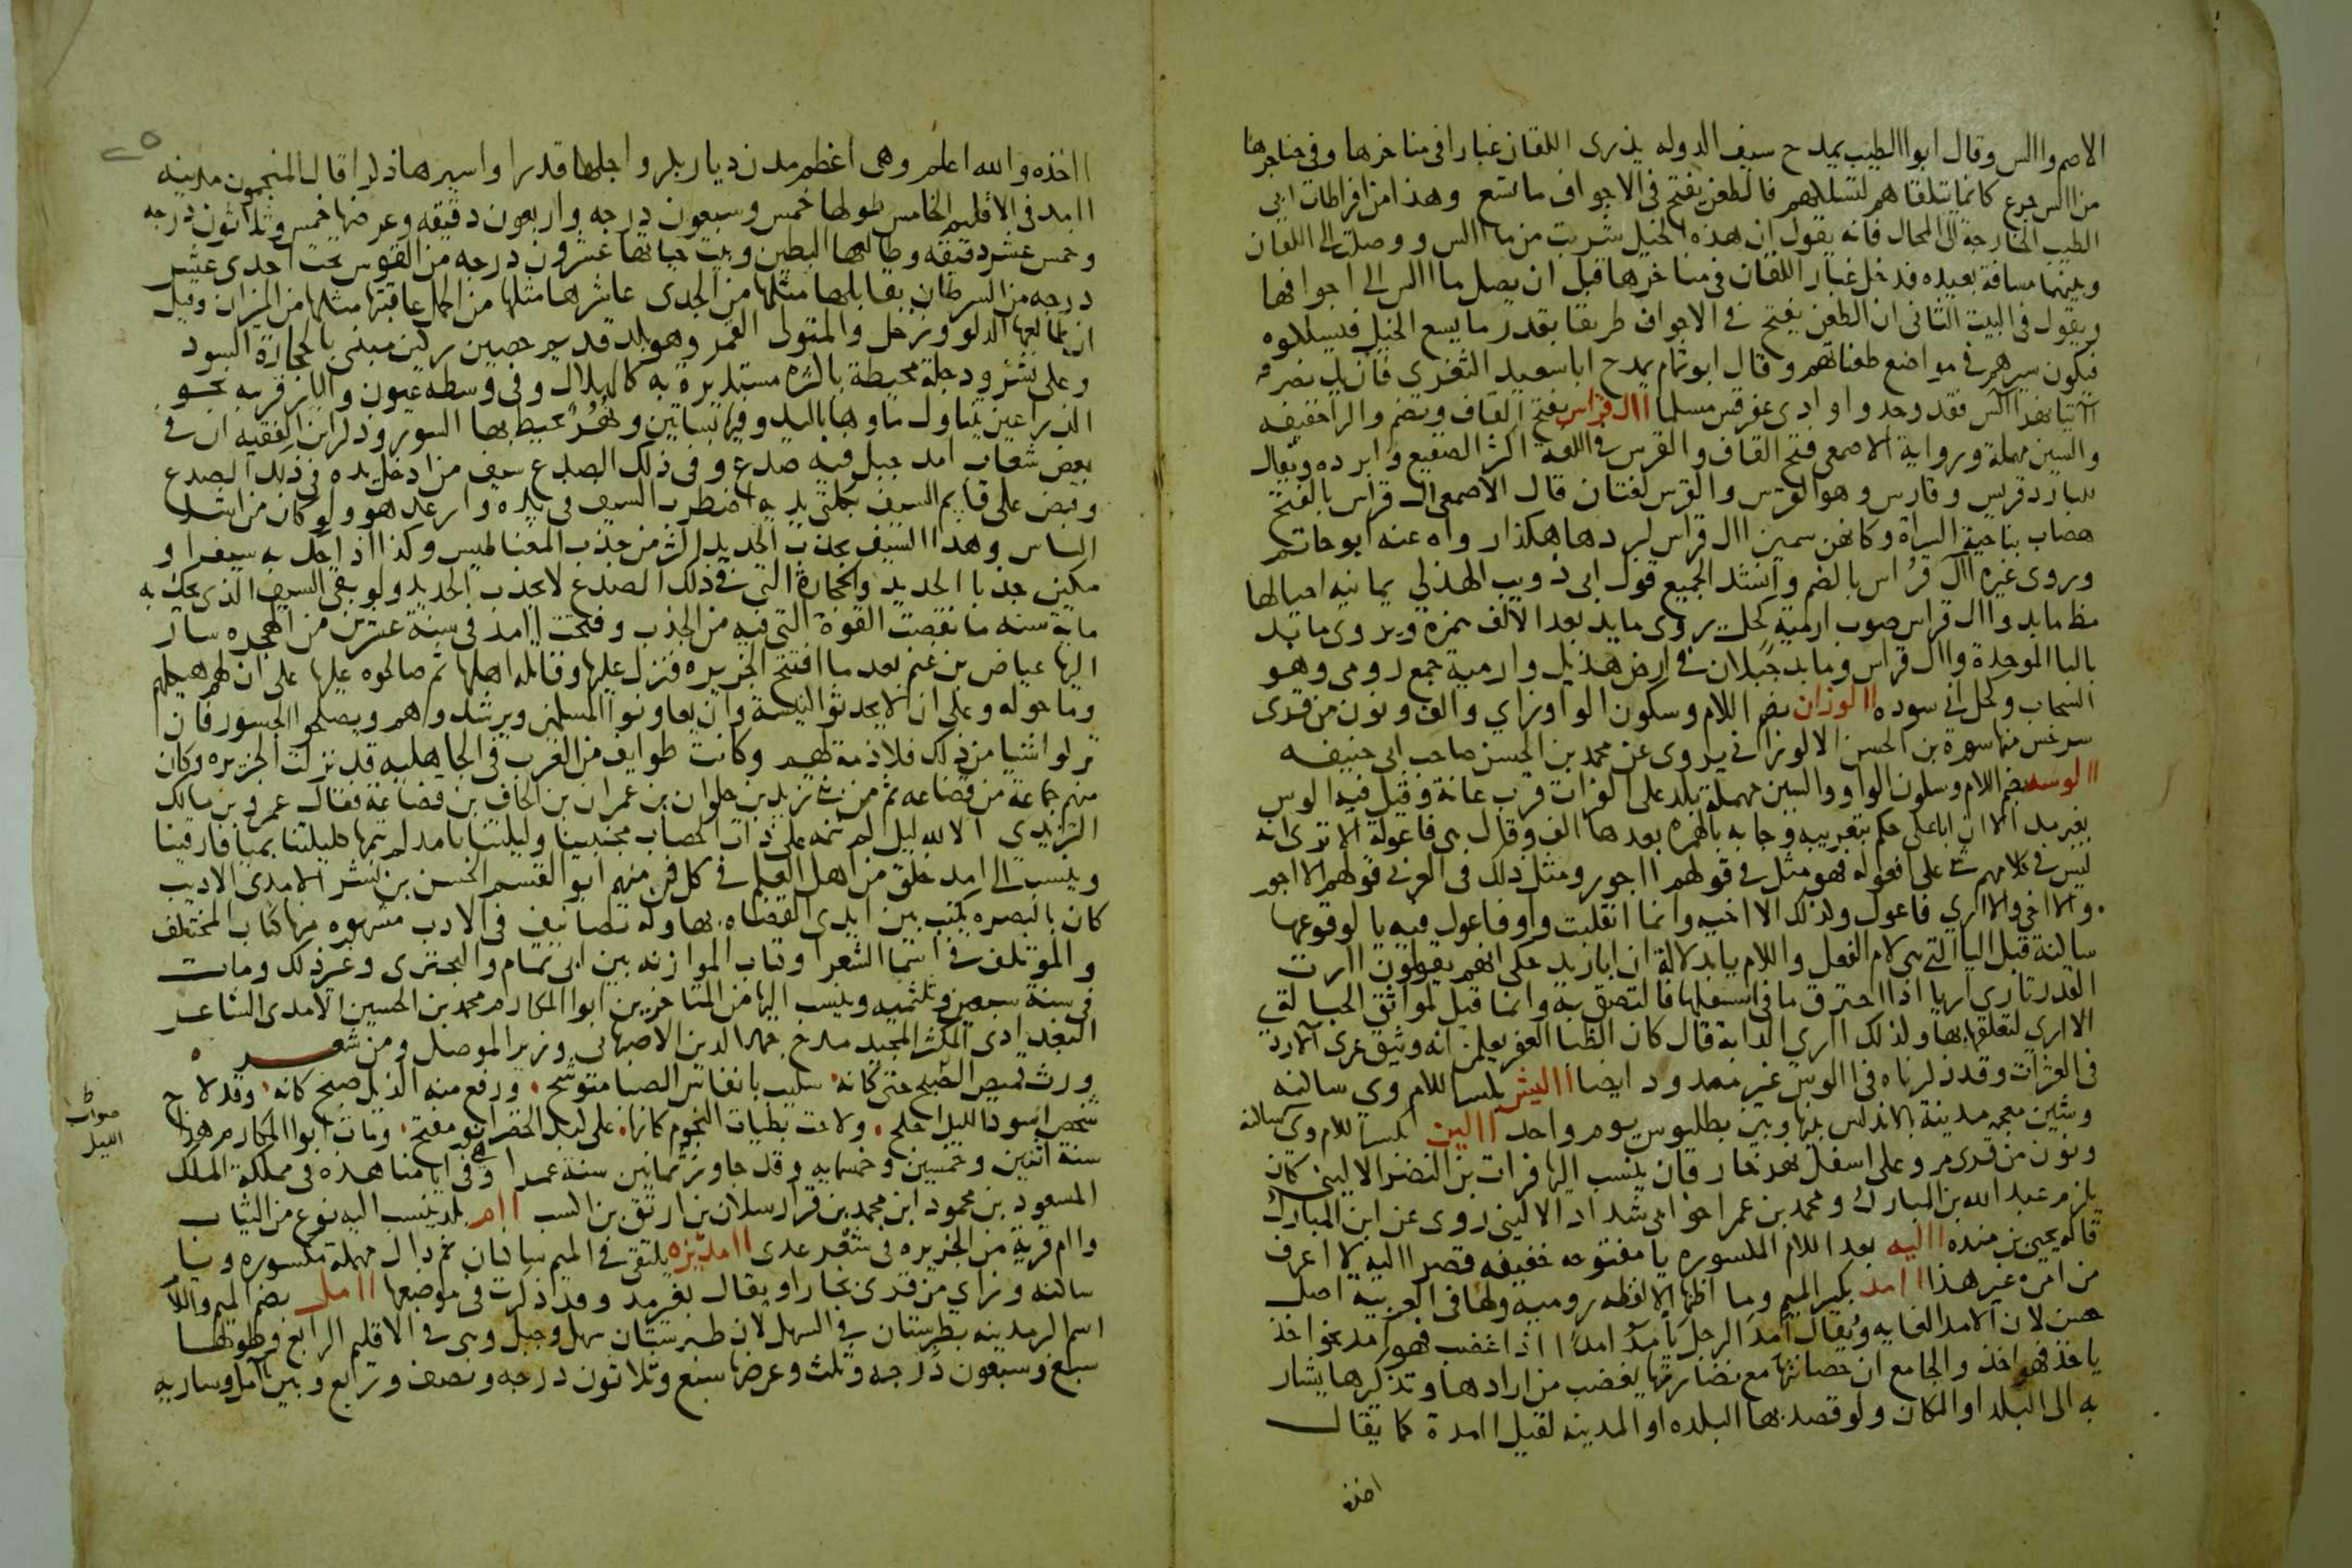 الاصم واالس وقال ابواالطيب يمدح سيف الدوله يذرى اللقان غبارا فى مناخرها وفى حناجرها
من االس جرع كانما تتلقاهم لتسلكهم فالطعن يفتح فى الاجواف ماتسع وهذا من افراطات ابى
الطيب الخارجة الى المحال فانه يقول ان هذه الخيل شربت من ما االس ووصلت الى اللقان
وبينهما مسافة بعيده فدخل غبار اللقان فى مناخرها قبل ان يصل ما االس الى اجوافها
ويقول فى البيت الثانى ان الطعن يفتح فى الاجواف طريقا بقدر ما يسع الخيل فتسلكوه
فيكون سيرهم فى مواضع طعناتهم وقال ابوتمام يمدح اباسعيد الثغرى فان يك نصرانيا
النهر االس فقد وجدوا وادى عقرقس مسلما اال قراس بفتح القاف ويضم والرا خفيفه
والسين مهملة ورواية الاصمعى فتح القاف والقرس فى اللغة اكثر الصقيع وابرده ويقال
للبارد قريس وقارس وهو القرس والقرس لغتان قال الاصمعى ال قراس بالفتح
هضاب بناحية السراة وكانهن سمين اال قراس لبردها هكذا رواه عنه ابوحاتم
وروى غيره اال قُراس بالضم وانشد الجميع قول ابى ذويب الهذلي يمانيه احيالها
مظ مابد واال قراس صوب ارمية كحل يروى مايد بعد الالف همزة ويروى مابد
بالبا الموحدة واال قراس ومابد جبلان فى ارض هذيل وارمية جمع رومى وهو
السحاب وكحل اى سوده االوزان بضم اللام وسكون الواو وزاي والف ونون من قرى
سرخس منها سورة بن الحسن الالوزانى يروى عن محمد بن الحسن صاحب ابى حنيفه
االوسه بضم اللام وسكون الواو والسين مهملة بلد على الفرات قرب عانة وقيل فيه الوس
بغير مد الا ان اباعلى حكم بتعريبه وجا به بالهمزه بعدها الف وقال هى فاعولة الا ترى انه
ليس فى كلامهم شى على افعوله فهو مثل فى قولهم ااجور ومثل ذلك فى العربى قولهم الااجور
والااخى والااري فاعول وكذلك الااخيه وانما انقلبت واو فاعول فيه يا لوقوعها
ساكنة قبل اليا التى هى لام الفعل واللام يا بدلالة ان ابازيد حكى انهم يقولون اارت
القدر تارى اريا اذا احترق ما فى اسفلها فالتصق به وانما قيل لمواثق الحبا لق
الاارى لتعلقها بها ولذلك اارى الدابة قال كان الظبا العفر يعلمن انه وثيق عرى الارى
فى العثرات وقد ذكرناه فى االوس غير ممدود ايضا االيش بكسر اللام وى ساكنه
وشين معجمه مدينة بالاندلس بينها وبين بطليوس يوم واحد االين بكسر اللام وى ساكنه
ونون من قرى مرو على اسفل نهر خارقان ينسب اليها فرات بن النضر الالينى كان
يلزم عبد الله بن المبارك ومحمد بن عمر اخو ابى شداد الالينى روى عن ابن المبارك
قاله يحيى بن منده االيه بعد اللام المكسوره يا مفتوحه خفيفه قصر االيه لا اعرف
من امره غير هذا اامد بكسر الميم وما اظنها الا لفظه روميه ولها فى العربية اصل
حسن لان الامد الغايه ويقال أمِدَ الرجل يأمَدُ امدًا اذا غضب فهو اامد نحو اخذ
ياخذ فهو ااخذ والجامع ان حصانتها مع نضارتها يغضب من ارادها وتذكيرها يشار
به الى البلد او المكان ولو قصد بها البلده او المدينه لقيل اامدة كما يقال
اخذه
ااخذه والله اعلم وهى اعظم مدن ديار بكر واجلها قدرا واسيرها ذكرا قال المنجمون مدينه
اامد فى الاقليم الخامس طولها خمس وسبعون درجه واربعون دقيقه وعرضها خمس وثلاثون درجه
وخمس عشر دقيقه وطالعها البطين وبيت حياتها عشرون درجه من القوس تحت احدى عشر
درجه من السرطان يقابلها مثلها من الجدى عاشرها مثلها من الحمل عاقبتها مثلها من الميزان وقيل
ان طالعها الدلو وزحل والمتولى القمر وهو بلد قديم حصين ركين مبنى بالحجارة السود
وعلى نشز ودجلة محيطة باكثره مستديرة به كالهلال وفى وسطه عيون واابار قريبه نحو
الذراعين يتناول ماوها باليد وفيها بساتين ونهر يحيط بها السور وذكر ابن الفقيه ان فى
بعض شعاب امد جبل فيه صدع وفى ذلك الصدع سيف من ادخل يده فى ذلك الصدع
وقبض على قايم السيف بكلتى يديه اضطرب السيف فى يده وارعد هو ولو كان من اشد
الناس وهذا السيف يجذب الحديد اكثر من جذب المغناطيس وكذا اذا حك به سيف او
سكين جذبا الحديد والحجارة التى فى ذلك الصدع لا يجذب الحديد ولو بقى السيف الذى يحك به
ماية سنه ما نقصت القوة التى فيه من الجذب وفتحت اامد فى سنة عشرين من الهجره سار
اليها عياض بن غنم بعد ما افتتح الجزيره فنزل عليها وقاتله اهلها ثم صالحوه عليها على ان لهم هيكلهم
وما حوله وعلى ان لا يحدثوا كنيسة وان يعاونوا المسلمين ويرشدوهم ويصلحوا الجسور فان
تركوا شيا من ذلك فلا ذمة لهم وكانت طوايف من العرب فى الجاهليه قد نزلت الجزيره وكان
منهم جماعة من قضاعه ثم من بنى تزيد بن حلوان بن عمران بن الحاف بن قضاعة فقال عمرو بن مالك
التزيدي الا لله ليل لم ننمه على ذات الخضاب مجنبينا وليلتنا باامد لم ننمها كليلتنا بميافارقينا
وينسب الى امد خلق من اهل العلم فى كل فن منهم ابو القسم الحسن بن بشر الامدى الاديب
كان بالبصره يكتب بين ايدى القضاه بها وله تصانيف فى الادب مشهوره منها كتاب المختلف
والموتلف فى اسما الشعرا وكتاب الموازنه بين ابى تمام والبحترى وغير ذلك ومات
فى سنة سبعين وثلثميه وينسب اليها من المتاخرين ابوا المكارم محمد بن الحسين الامدى الشاعر
البغدادى المكثر المجيد مدح جمال الدين الاصبهانى وزير الموصل ومن شعره
ورث قميص الصبح حتى كانه سليب بانفاس الصبا متوشح ورفع منه الذيل صبح كانه وقد لاح
شخص اسود الليل اجلح ولاحت بطيات النجوم كانها على كبد الخضرا نور مفتح ومات ابوا المكارم هذا
سنة اثنين وخمسين وخمسمايه وقد جاوز ثمانين سنة عمرا وهى فى ايامنا هذه فى مملكة الملك
المسعود بن محمود ابن محمد بن قرا ارسلان بن ارتق بن اكسب اام بلد ينسب اليه نوع من الثياب
واام قرية من الجزيره فى شعر عدى اامديزه يلتقى فى الميم ساكنان ثم دال مهملة مكسوره ويا
ساكنه وزاي من قرى بخارا ويقال بغير مد وقد ذكرت فى موضعها اامل بضم الميم واللام
اسم اكبر مدينه بطبرستان فى السهل لان طبرستان سهل وجبل وهى فى الاقليم الرابع وطولها
سبع وسبعون درجه وثلث وعرضها سبع وثلاثون درجه ونصف وربع وبين اامل وساريه
صوابه
الليل